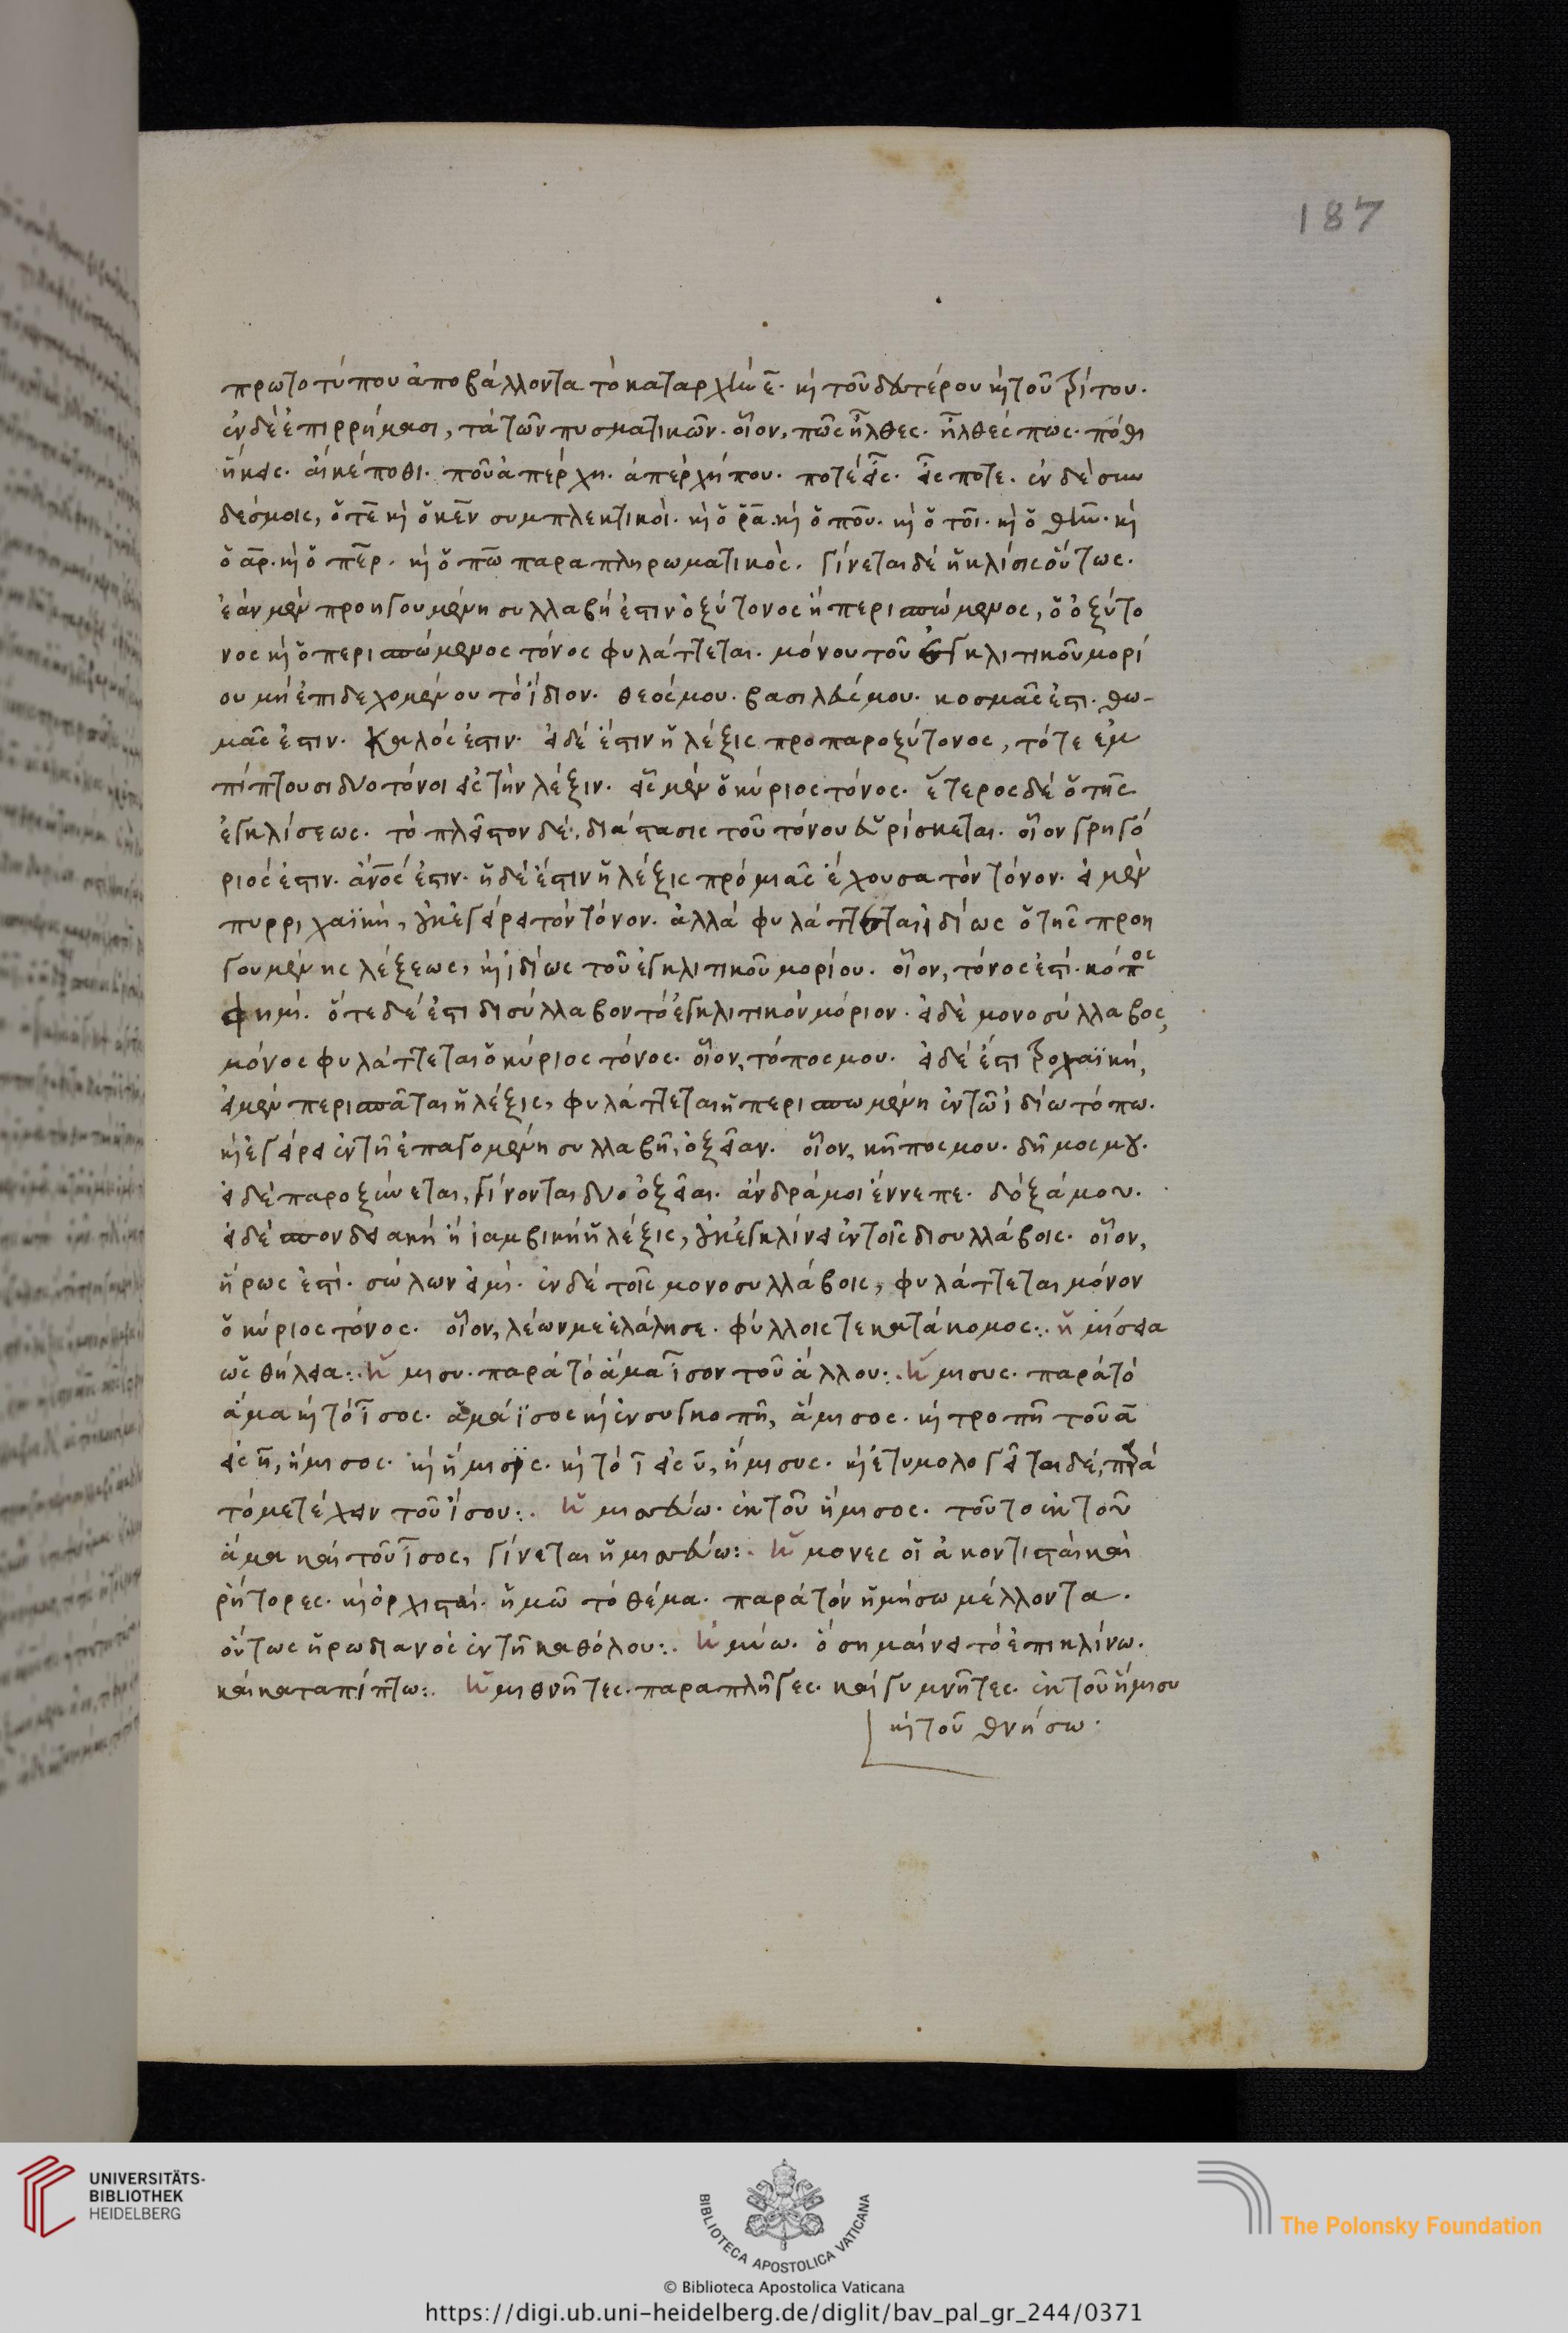 187
πρωτοτύπου ἀποβάλλοντα τὸ καταρχὴν ε̄. καὶ τοῦ δευτέρου καὶ τοῦ τρίτου.
ἐν δὲ ἐπιρρήμασι, τὰ τῶν πυσματικῶν. οἷον, πῶς ἦλθες. ἦλθές πως. πόθι
ἥκεις. εἵκέ ποθι. ποῦ ἀπέρχη. ἀπέρχή που. ποτὲ εἷς. εἷς ποτε. ἐν δὲ συν
δέσμοις, ὅ τε καὶ ὁ κεν συμπλεκτικοὶ. καὶ ὁ ῥα. καὶ ὁ που. καὶ ὁ τοι. καὶ ὁ θην. καὶ
ὁ αρ. καὶ ὁ περ. καὶ ὁ πω παραπληρωματικὸς. γίνεται δὲ ἡ κλίσις οὕτως.
ἐὰν μὲν προηγουμένη συλλαβή ἐστιν ὀξύτονος ἢ περισπώμενος, ὁ ὀξύτο
νος καὶ ὁ περισπώμενος τόνος φυλάττεται. μόνου τοῦ ἐγκλιτικοῦ μορί
ου μὴ ἐπιδεχομένου τὸ ἴδιον. θεός μου. βασιλεύς μου. κοσμᾶς ἐστι. θω-
μᾶς ἐστιν. Καλός ἐστιν. εἰ δέ ἐστιν ἡ λέξις προπαροξύτονος, τότε ἐμ
πίπτουσι δύο τόνοι εἰς τὴν λέξιν. εἷς μὲν ὁ κύριος τόνος. ἕτερος δὲ ὁ τῆς
ἐγκλίσεως. τὸ πλεῖστον δὲ, διάστασις τοῦ τόνου εὑρίσκεται. οἷον γρηγό
ριός ἐστιν. ἄνος ἐστιν. ἢ δέ ἐστιν ἡ λέξις πρὸ μιᾶς ἔχουσα τὸν τόνον. εἰ μὲν
πυρριχαϊκὴ, οὐκ ἐγείρει τὸν τόνον. ἀλλὰ φυλάττεται ἰδίως ὁ τῆς προη
γουμένης λέξεως, καὶ ἰδίως τοῦ ἐγκλιτικοῦ μορίου. οἷον, τόνος ἐστί. κόπος
φημί. ὅτε δέ ἐστι δισύλλαβον τὸ ἐγκλιτικὸν μόριον. εἰ δὲ μονοσύλλαβος,
μόνος φυλάττεται ὁ κύριος τόνος. οἷον, τόπος μου. εἰ δέ ἐστι τροχαϊκή,
εἰ μὲν περισπᾶται ἡ λέξις, φυλάττεται ἡ περισπωμένη ἐν τῶ ἰδίω τόπω.
καὶ ἐγείρει ἐν τῆ ἐπαγομένη συλλαβῆ, ὀξεῖαν. οἷον, κῆπος μου. δῆμος μου.
εἰ δὲ παροξύνεται, γίνονται δύο ὀξεῖαι. ἄνδρά μοι ἔννεπε. δόξά μου.
εἰ δὲ σπονδειακὴ ἢ ἰαμβικὴ ἡ λέξις, οὐκ ἐγκλίνει ἐν τοῖς δισυλλάβοις. οἷον,
ἥρως ἐστί. σώλων εἰμί. ἐν δὲ τοῖς μονοσυλλάβοις, φυλάττεται μόνον
ὁ κύριος τόνος. οἷον, λέων με ἐλάλησε. φύλλοις τε κατάκομος:. ἡμίσεια
ὡς θήλεια:. ἥμισυ. παρὰ τὸ ἅμα ἶσον τοῦ ἄλλου:. ἥμισυς. παρὰ τὸ
ἅμα καὶ τὸ ἶσος. ἅμάϊσος καὶ ἐν συγκοπῆ, ἅμισος. καὶ τροπῆ τοῦ ᾱ
εἰς η̄, ἥμισος. καὶ ἥμισυς. καὶ τὸ ῑ εἰς ῡ, ἥμισυς. καὶ ἐτυμολογεῖται δὲ, παρὰ
τὸ μετέχειν τοῦ ἴσου:. ἡμισεύω. ἐκ τοῦ ἥμισος. τοῦτο ἐκ τοῦ
ἅμα καὶ τοῦ ἶσος, γίνεται ἡμισεύω:. ἥμονες οἱ ἀκοντισταὶ καὶ
ῥήτορες. καὶ ὀρχισταί. ἡμῶ τὸ θέμα. παρὰ τὸν ἡμήσω μέλλοντα.
οὕτως ἡρωδιανὸς ἐν τῆ καθόλου:. ἠμύω. ὃ σημαίνει τὸ ἐπικλίνω.
καὶ καταπίπτω:. ἡμιθνῆτες. παραπλῆγες. καὶ γυμνῆτες. ἐκ τοῦ ἥμισυ
καὶ τοῦ θνήσω.
UNIVERSITÄTS-
BIBLIOTHEK
HEIDELBERG
BIBLIOTECA APOSTOLICA VATICANA
The Polonsky Foundation
© Biblioteca Apostolica Vaticana
https://digi.ub.uni-heidelberg.de/diglit/bav_pal_gr_244/0371